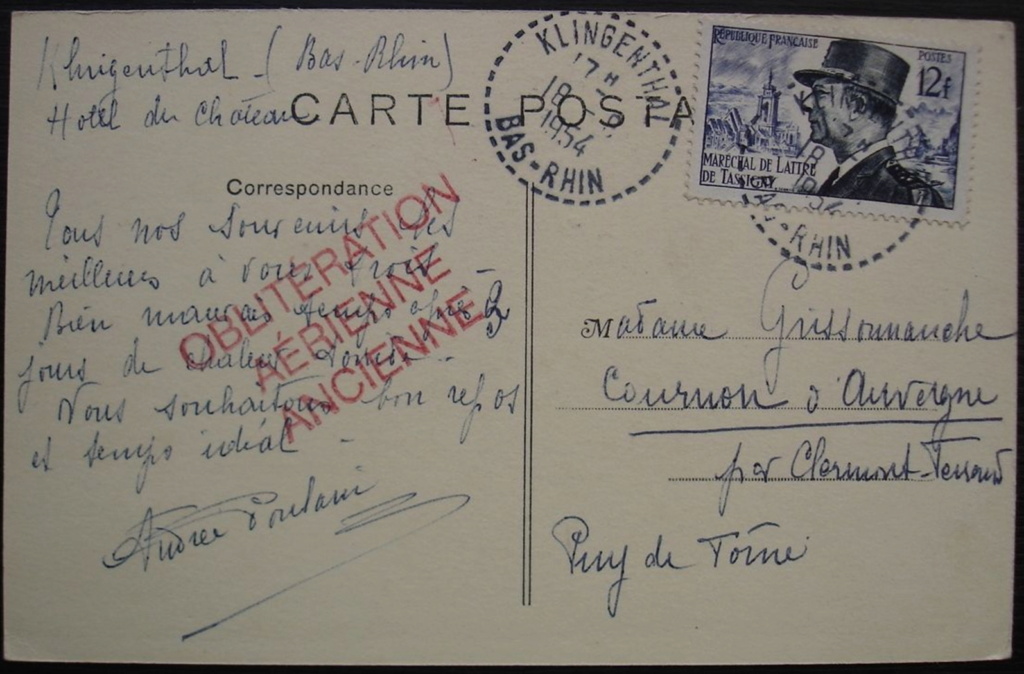 Klingenthal - (Bas-Rhin)
Hotel du Château
CARTE POSTA
Correspondance
Tous nos souvenirs les
meilleurs à vous trois
Bien mauvais temps après 3
jours de chaleur
Vous souhaitons bon repos
et temps idéal -
Andrée Poulain
OBLITÉRATION
AÉRIENNE
ANCIENNE
KLINGENTHAL
17 H
18
1954
BAS-RHIN
RÉPUBLIQUE FRANÇAISE
POSTES
12f
MARÉCHAL DE LATTRE
DE TASSIGNY
18
1954
BAS-RHIN
Madame Grissonnanche
Cournon d'Auvergne
par Clermont-Ferrand
Puy de Dôme